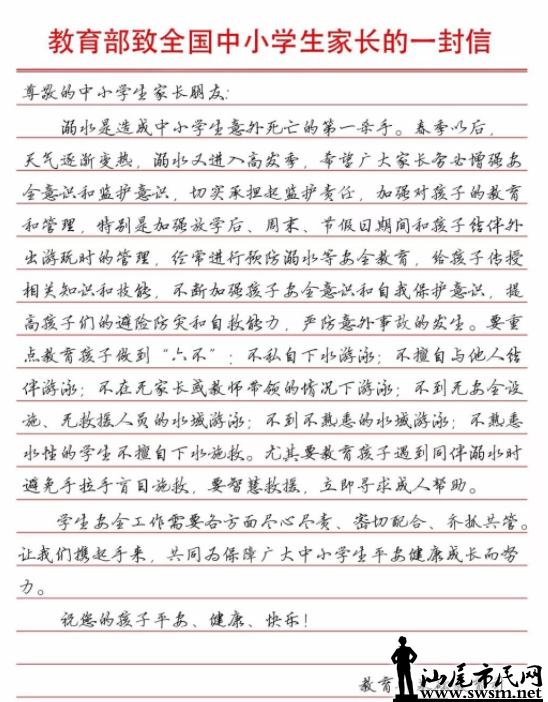 教育部致全国中小学生家长的一封信
尊敬的中小学生家长朋友:
溺水是造成中小学生意外死亡的第一杀手。春季以后,
天气逐渐变热,溺水又进入高发季,希望广大家长务必增强安
全意识和监护意识,切实承担起监护责任,加强对孩子的教育
和管理,特别是加强放学后、周末、节假日期间和孩子结伴外
出游玩时的管理,经常进行预防溺水等安全教育,给孩子传授
相关知识和技能,不断加强孩子安全意识和自我保护意识,提
高孩子们的避险防灾和自救能力,严防意外事故的发生。要重
点教育孩子做到“六不”:不私自下水游泳;不擅自与他人结
伴游泳;不在无家长或教师带领的情况下游泳;不到无安全设
施、无救援人员的水域游泳;不到不熟悉的水域游泳;不熟悉
水性的学生不擅自下水施救。尤其要教育孩子遇到同伴溺水时
避免手拉手盲目施救,要智慧救援,立即寻求成人帮助。
学生安全工作需要各方面尽心尽责、密切配合、齐抓共管。
让我们携起手来,共同为保障广大中小学生平安健康成长而努
力。
祝您的孩子平安、健康、快乐!
教育
汕尾市民网
www.swsm.net